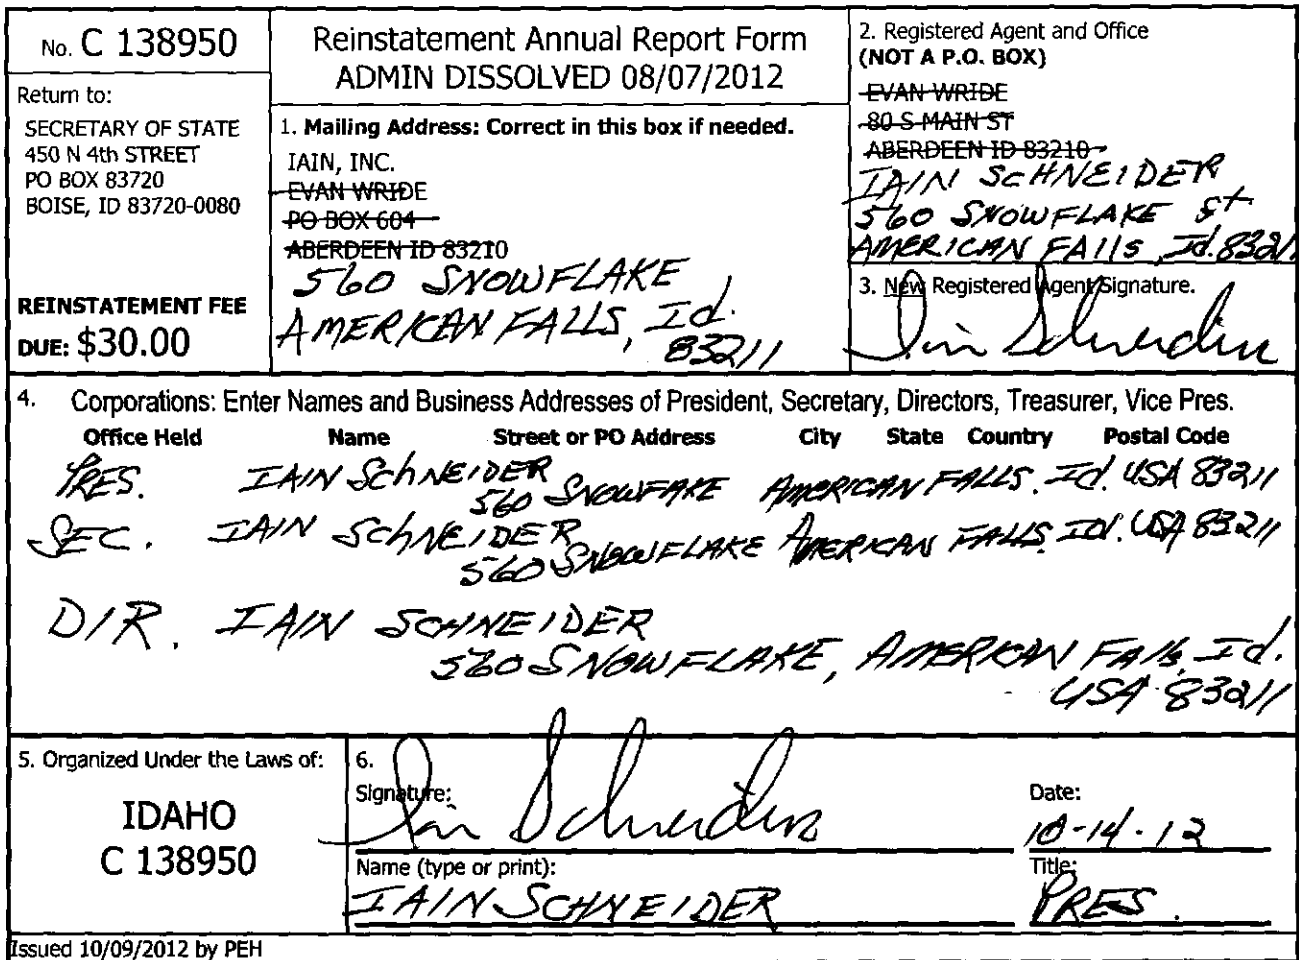 No. C 138950
Return to:
SECRETARY OF STATE
450 N 4th STREET
PO BOX 83720
BOISE, ID 83720-0080
REINSTATEMENT FEE
DUE: $30.00
Reinstatement Annual Report Form
ADMIN DISSOLVED 08/07/2012
1. Mailing Address: Correct in this box if needed.
IAIN, INC.
EVAN WRIDE
PO BOX 604
ABERDEEN ID 83210
560 SNOWFLAKE
AMERICAN FALLS, Id.
83211
2. Registered Agent and Office
(NOT A P.O. BOX)
EVAN WRIDE
80 S MAIN ST
ABERDEEN ID 83210
IAIN SCHNEIDER
560 SNOWFLAKE St
AMERICAN FAlls, Id. 83211
3. New Registered Agent Signature.
Iain Schneider
4. Corporations: Enter Names and Business Addresses of President, Secretary, Directors, Treasurer, Vice Pres.
Office Held Name Street or PO Address City State Country Postal Code
PRES. IAIN SchNEIDER
560 SNOWFAKE AMERICAN FALLS. Id. USA 83211
SEC. IAIN SchNEIDER
560 SNOWFLAKE AMERICAN FALLS. Id. USA 83211
DIR. IAIN SCHNEIDER
560 SNOWFLAKE, AMERICAN FAlls, Id.
USA 83211
5. Organized Under the Laws of:
IDAHO
C 138950
6.
Signature: Iain Schneider
Date:
10-14-12
Name (type or print):
IAIN SCHNEIDER
Title:
PRES.
Issued 10/09/2012 by PEH